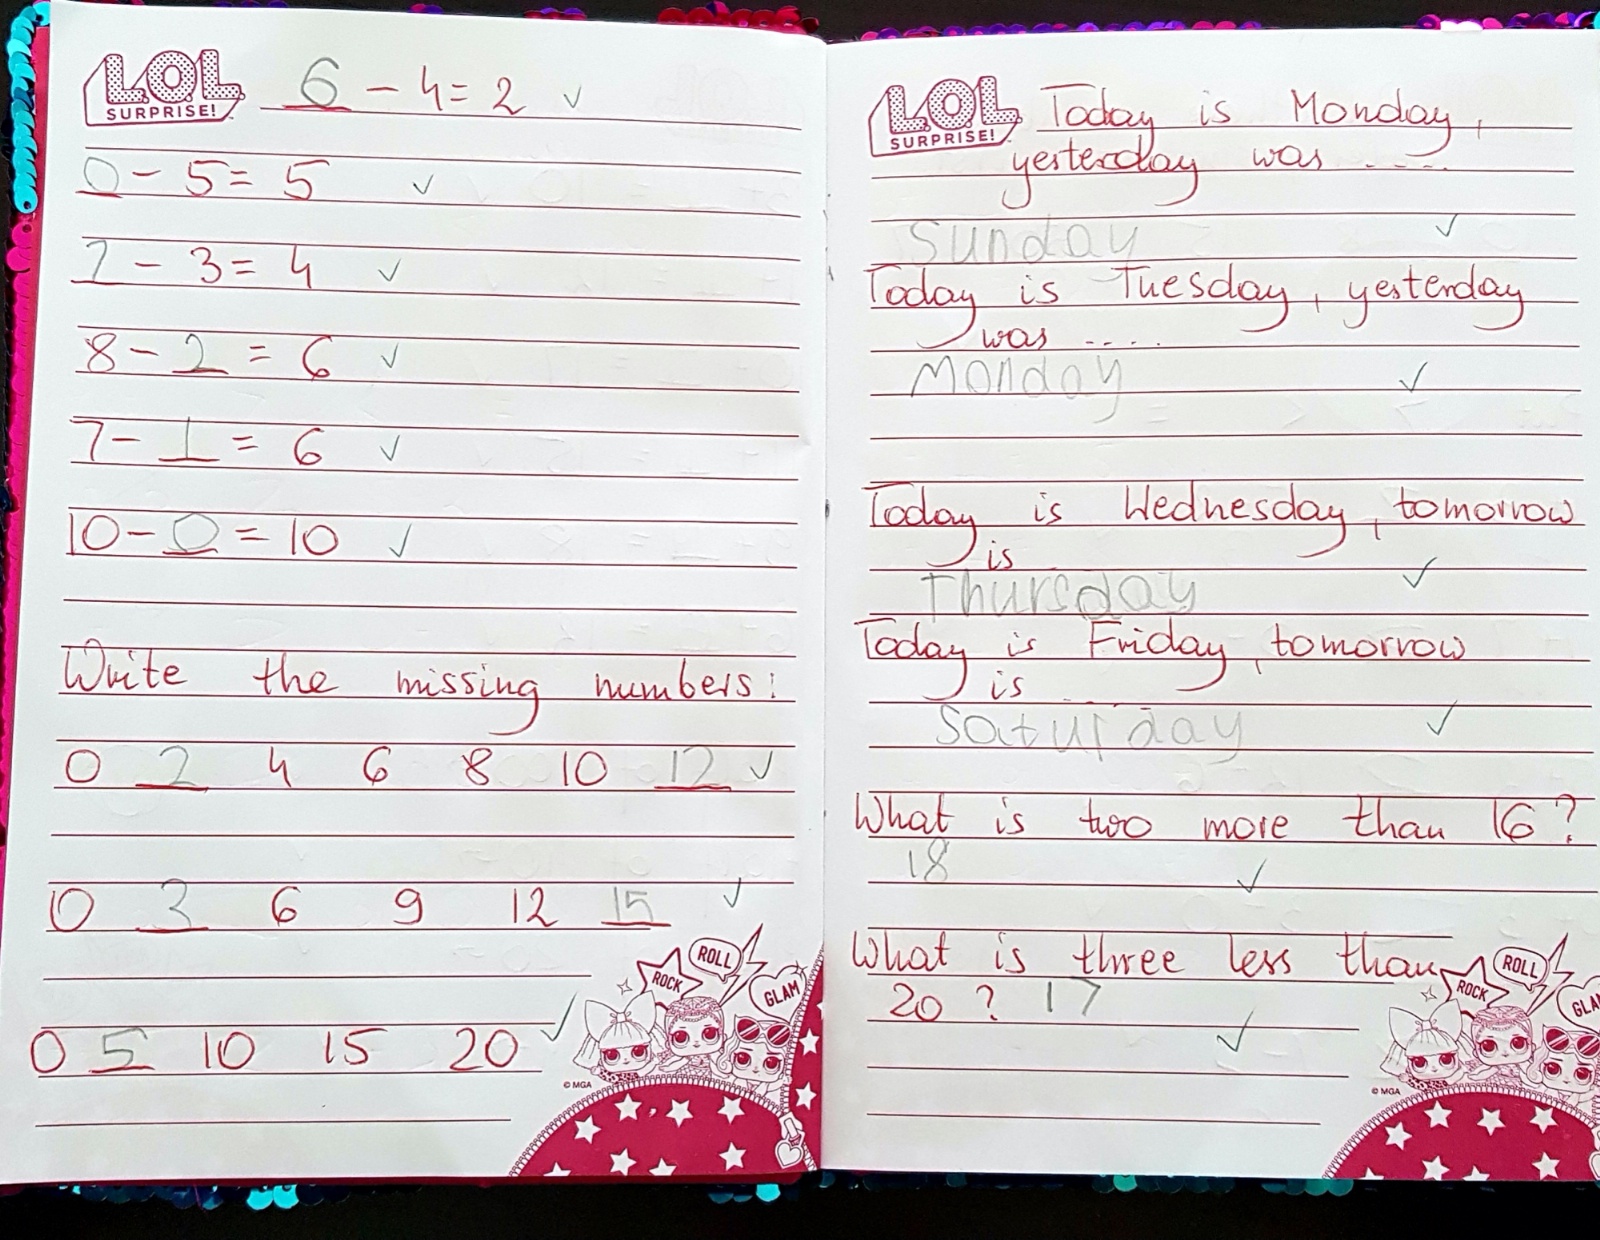 L.O.L.
SURPRISE!
6 - 4 = 2 ✓
0 - 5 = 5 ✓
7 - 3 = 4 ✓
8 - 2 = 6 ✓
7 - 1 = 6 ✓
10 - 0 = 10 ✓
Write the missing numbers:
0 2 4 6 8 10 12 ✓
0 3 6 9 12 15 ✓
0 5 10 15 20 ✓
ROCK
ROLL
GLAM
© MGA
L.O.L.
SURPRISE!
Today is Monday,
yesterday was ....
Sunday ✓
Today is Tuesday, yesterday
was ....
Monday ✓
Today is Wednesday, tomorrow
is
Thursday ✓
Today is Friday, tomorrow
is ....
Saturday ✓
What is two more than 16?
18 ✓
What is three less than
20 ? 17
✓
ROCK
ROLL
GLA
© MGA